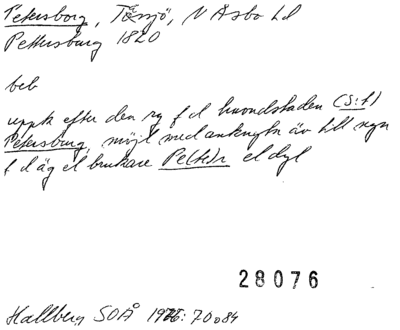 Petersborg, Tåsjö, N Åsbo hd
Pettersburg 1820
beb
uppk efter den ry f d huvudstaden (S:t)
Petersburg, möjl med anknytn äv till ngn
f d äg el brukare Pe(tt)r el dyl
28076
Hallberg SOÅ 1976: 70 o 84